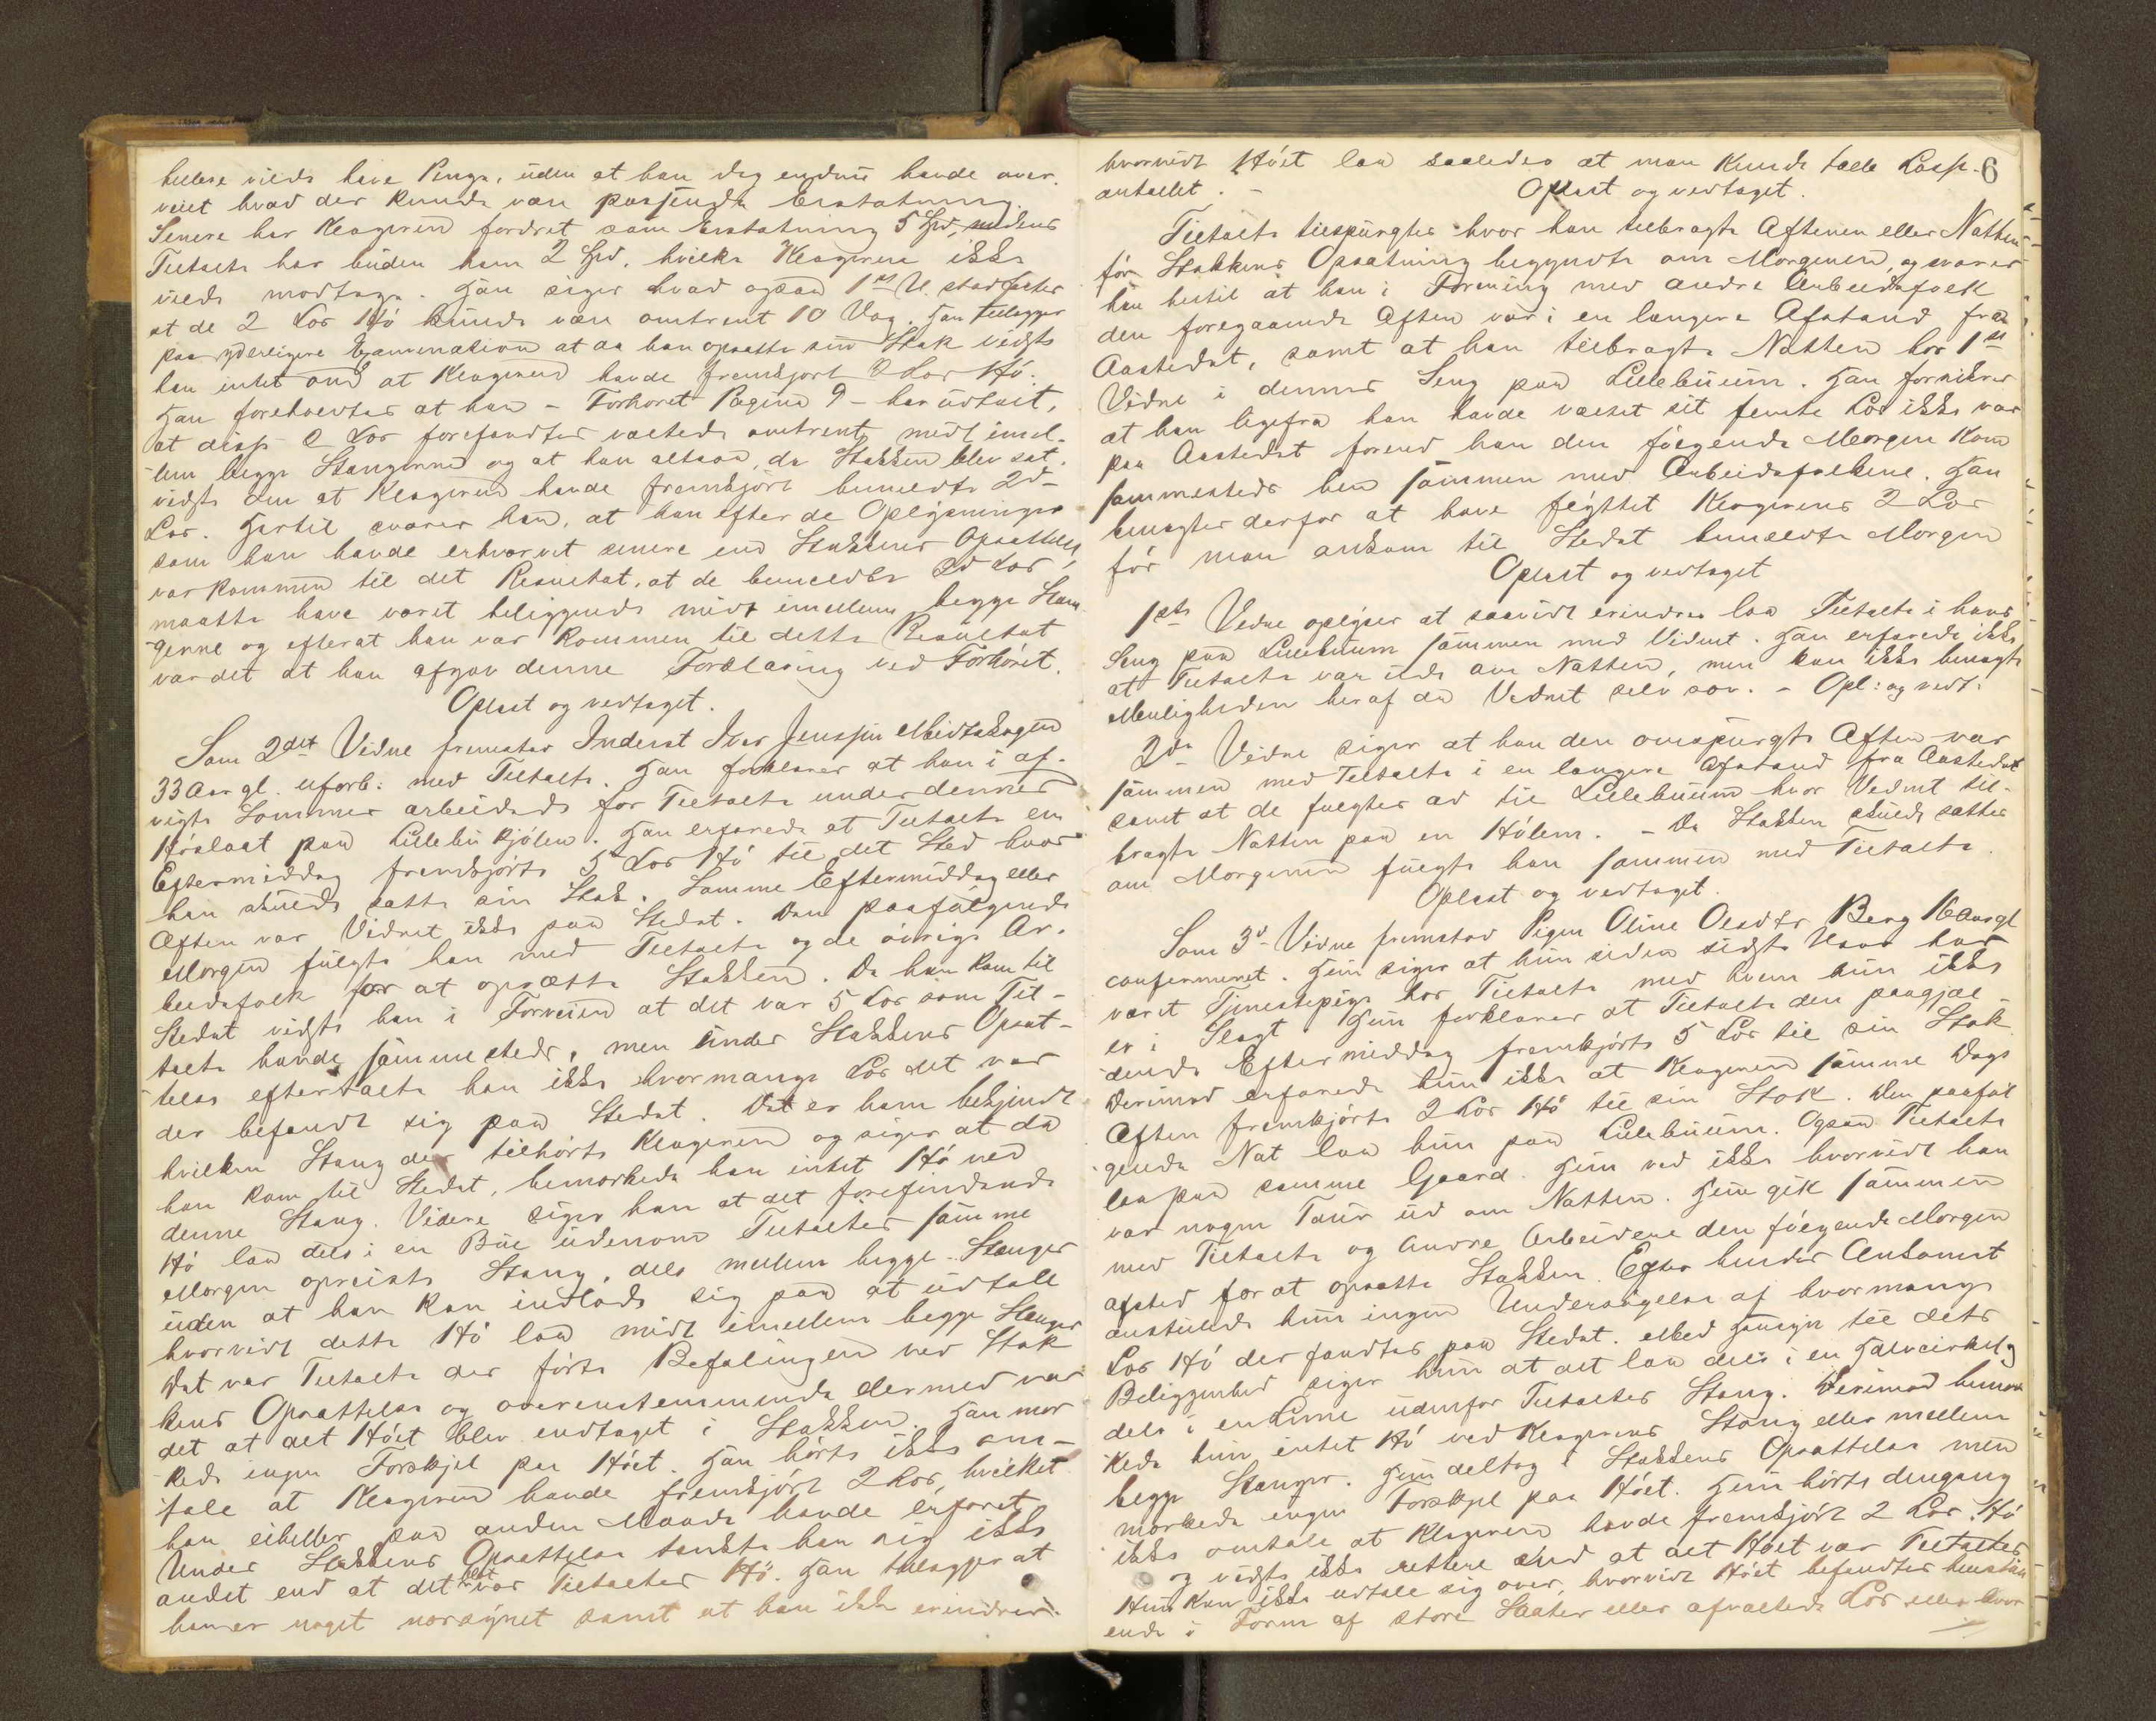 hellere vilde have Penge, uden at han dog endnu havde over-
veiet hvad der kunde være passende Erstatning.
Senere har Klageren fordret som Erstatning 5 Spd, medens
Tiltalte har buden ham 2 Spd. hvilke Klageren ikke
vilde modtage. Han siger hvad ogsaa 1ste V. stadfæster
at de 2 Las Hö kunde være omtrent 10 Vog. Han tillægger
paa yderligere Examination at da han opsatte sin Stak vidste
han intet om at Klageren havde fremkjört 2 Las Hö.
Han foreholdtes at han – Forhöret Pagina 9 – har udtalt,
at disse 2 Las forefandtes væltede omtrent midt imel-
lem begge Stængerne og at han altsaa, da Stakken blev sat,
vidste om at Klageren havde fremkjört bemeldte 2de
Las. Hertil svarer han, at han efter de Oplysninger
som han havde erhvervet senere end Stakkens Opsættelse
var kommen til det Resultat, at de bemeldte 2de Las
maatte have været beliggende midt imellem begge Stæn-
gerne og efterat han var kommen til dette Resultat
var det at han afgav denne Forklaring ved Forhöret.
Oplæst og vedtaget.
Som 2det Vidne fremstod Inderst Iver Jenssen Midtskogen
33 Aar gl. uforb: med Tiltalte. Han forklarer at han i af-
vigte Sommer arbeidede for Tiltalte under dennes
Höslaat paa Lillebukjölen. Han erfarede at Tiltalte en
Eftermiddag fremkjörte 5 Las Hö til det Sted hvor
han skulde sætte sin Stak. Samme Eftermiddag eller
Aften var Vidnet ikke paa Stedet. Den paafölgende
Morgen fulgte han med Tiltalte og de övrige Ar-
beidsfolk for at opsætte Stakken. Da han kom til
Stedet vidste han i Forveien at det var 5 Las som Til-
talte havde sammesteds, men under Stakkens Opsæt-
telse eftertalte han ikke hvormange Las det var
der befandt sig paa Stedet. Det er ham bekjendt
hvilken Stang der tilhörte Klageren og siger at da
han kom til Stedet, bemærkede han intet Hö ved
denne Stang. Videre siger han at det forefindende
Hö laa dels i en Bue udenom Tiltaltes samme
Morgen opreiste Stang, dels mellem begge Stænger
uden at han kan indlade sig paa at udtale
hvorvidt dette Hö laa midt imellem begge Stænger
Det var Tiltalte der förte Befalingen ved Stak-
kens Opsættelse og overenstemmende dermed var
det at alt Höet blev indtaget i Stakken. Han mær-
kede ingen Forskjel paa Höet. Han hörte ikke om-
tale at Klageren havde fremkjört 2 Las, hvilket
han eiheller paa anden Maade havde erfaret.
Under Stakkens Opsættelse tænkte han sig ikke
andet end at det alt var Tiltaltes Hö. Han tillægger at
han er noget nærsynet samt at han ikke erindrer
6
hvorvidt Höet laa saaledes at man kunde tælle Læsse-
antallet. –
Oplæst og vedtaget.
Tiltalte tilspurgtes hvor han tilbragte Aftenen eller Natten
för Stakkens Opsætning begyndte om Morgenen, og svarer
han hertil at han i Forening med andre Arbeidsfolk
den foregaaende Aften var i en længere Afstand fra
Aastedet, samt at han tilbragte Natten hos 1ste
Vidne i dennes Seng paa Lillebuum. Han forsikrer
at han ligefra han havde væltet sit femte Las ikke var
paa Aastedet förend han den fölgende Morgen kom
sammesteds hen sammen med Arbeidsfolkene. Han
benegter derfor at have flyttet Klagerens 2 Las
för man ankom til Stedet bemeldte Morgen
Oplæst og vedtaget
1ste Vidne oplyser at saavidt erindres laa Tiltalte i hans
Seng paa Lillebuum sammen med Vidnet. Han erfarede ikke
at Tiltalte var ude om Natten, men kan ikke benegte
Muligheden heraf da Vidnet selv sov. – Opl: og vedt:
2de Vidne siger at han den omspurgte Aften var
sammen med Tiltalte i en længere Afstand fra Aastedet
samt at de fulgtes ad til Lillebuum hvor Vidnet til-
bragte Natten paa en Hölem. – Da Stakken skulde sættes
om Morgenen fulgte han sammen med Tiltalte.
Oplæst og vedtaget.
Som 3de Vidne fremstod Pigen Oline Olsdtr Berg 16 Aar gl
confermeret. Hun siger at hun siden sidste Vaar har
været Tjenestepige hos Tiltalte med hvem hun ikke
er i Slægt. Hun forklarer at Tiltalte den paagjæl-
dende Eftermiddag fremkjörte 5 Las til sin Stak.
Derimod erfarede hun ikke at Klageren samme Dags
Aften fremkjörte 2 Las Hö til sin Stak. Den paaföl-
gende Nat laa hun paa Lillebuum. Ogsaa Tiltalte
laa paa samme Gaard. Hun ved ikke hvorvidt han
var nogen Tour ud om Natten. Hun gik sammen
med Tiltalte og Andre Arbeidere den fölgende Morgen
afsted for at opsætte Stakken. Efter hendes Ankomst
anstillede hun ingen Undersögelse af hvormange
Las Hö der fandtes paa Stedet. Med Hensyn til dets
Beliggenhed siger hun at det laa dels i en Halvcirkel og
dels i en Linie udenfor Tiltaltes Stang. Derimod bemær-
kede hun intet Hö ved Klagerens Stang eller mellem
begge Stænger. Hun deltog i Stakkens Opsættelse men
mærkede ingen Forskjel paa Höet. Hun hörte dengang
ikke omtale at Klageren havde fremkjört 2 Las Hö
og vidste ikke rettere end at alt Höet var Tiltaltes
Hun kan ikke udtale sig over, hvorvidt Höet befandtes henstaa-
ende i Form af store Saater eller afvæltede Las eller hvor-